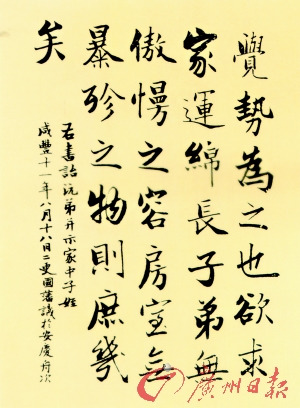 覺勢為之也欲求
家運綿長子弟無
傲慢之容房室無
暴殄之物則庶幾
矣
右書詒沅弟并示家中子姪
咸豐十一年八月十八日二更國藩議於安慶舟次
廣州日報